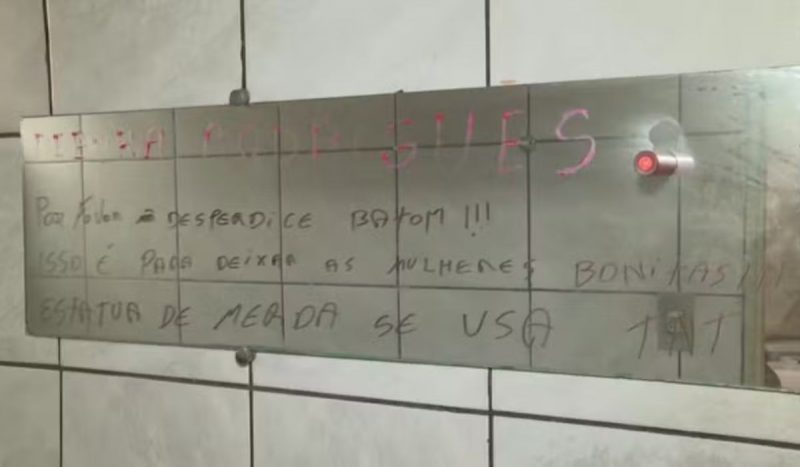 RODRIGUES
POR FAVOR Ñ DESPERDICE BATOM !!!
ISSO É PARA DEIXAR AS MULHERES BONITAS !!!
ESTATUA DE MERDA SE USA TNT